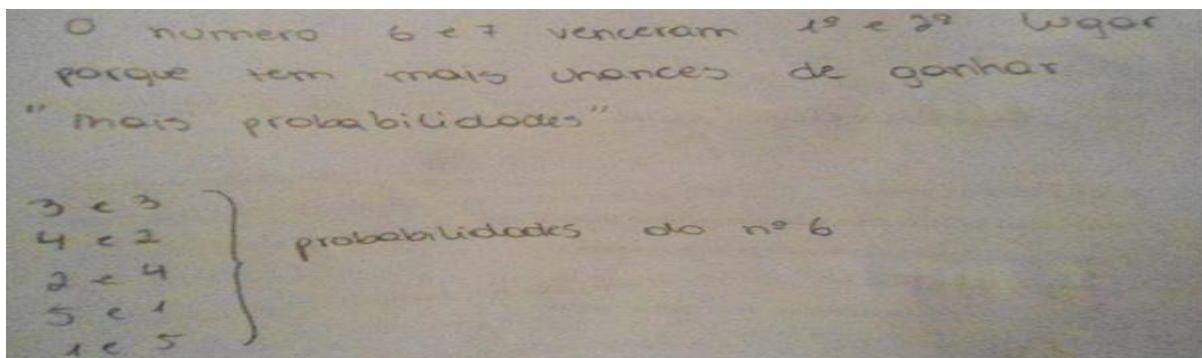 O numero 6 e 7 venceram 1º e 2º lugar
porque tem mais chances de ganhar
"mais probabilidades"
3 e 3
4 e 2
2 e 4
5 e 1
1 e 5
probabilidades do nº 6